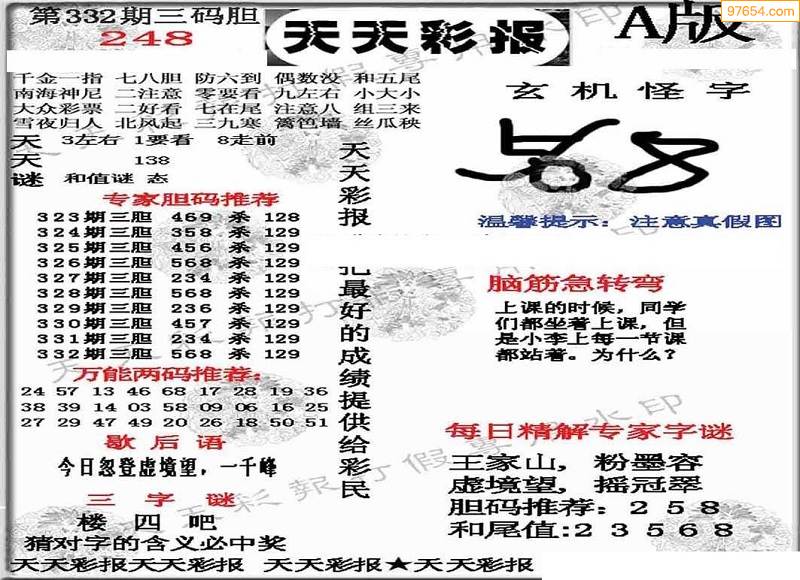 97654.com
第332期三码胆
248
天天彩报
A版
千金一指 七八胆 防六到 偶数没 和五尾
南海神尼 二注意 零要看 九左右 小大小
大众彩票 二好看 七在尾 注意八 组三来
雪夜归人 北风起 三九寒 篱笆墙 丝瓜秧
天 3左右 1要看 8走前
天 138
谜 和值谜 态
专家胆码推荐
323期三胆 469 杀 128
324期三胆 358 杀 129
325期三胆 456 杀 129
326期三胆 568 杀 129
327期三胆 234 杀 129
328期三胆 568 杀 129
329期三胆 568 杀 129
330期三胆 457 杀 129
331期三胆 234 杀 129
332期三胆 568 杀 129
万能两码推荐:
24 57 13 46 68 17 28 19 36
38 39 14 03 58 09 06 16 25
27 29 47 49 20 26 18 50 51
歇后语
今日忽登虚境望，一千峰
三字谜
楼四吧
猜对字的含义必中奖
天天彩报
把最好的成绩提供给彩民
玄机怪字
温馨提示：注意真假图
脑筋急转弯
上课的时候，同学
们都坐着上课，但
是小李上每一节课
都站着。为什么？
每日精解专家字谜
王家山，粉墨容
虚境望，摇冠翠
胆码推荐：258
和尾值:23568
天天彩报天天彩报 天天彩报★天天彩报